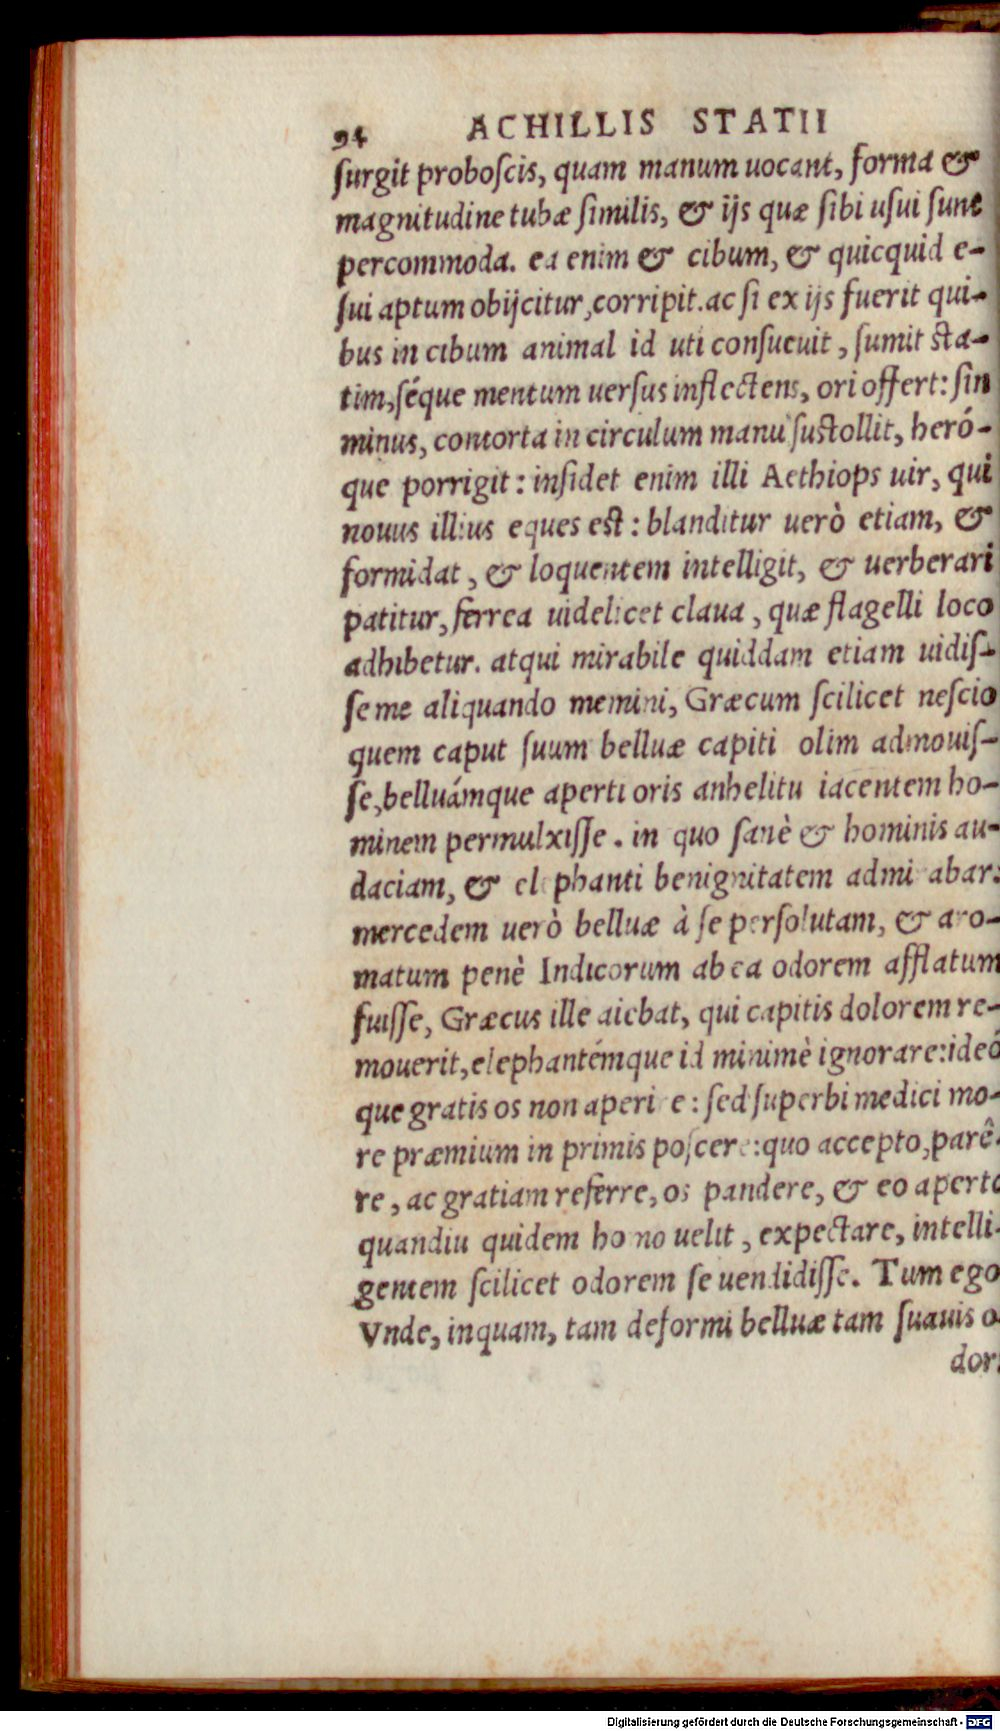 94 ACHILLIS STATII
ſurgit proboſcis, quam manum uocant, forma &
magnitudine tubæ ſimilis, & ijs quæ ſibi uſui ſunt
percommoda. ea enim & cibum, & quicquid e-
ſui aptum obijcitur, corripit. ac ſi ex ijs fuerit qui-
bus in cibum animal id uti conſueuit, ſumit ſta-
tim, ſéque mentum uerſus inflectens, ori offert: ſin
minus, contorta in circulum manu ſuſtollit, heró-
que porrigit: inſidet enim illi Aethiops uir, qui
nouus illius eques eſt: blanditur uerò etiam, &
formidat, & loquentem intelligit, & uerberari
patitur, ferrea uidelicet claua, quæ flagelli loco
adhibetur. atqui mirabile quiddam etiam uidiſ-
ſe me aliquando memini, Græcum ſcilicet neſcio
quem caput ſuum belluæ capiti olim admouiſ-
ſe, belluámque aperti oris anhelitu iacentem ho-
minem permulxiſſe. in quo ſanè & hominis au-
daciam, & elephanti benignitatem admirabar:
mercedem uerò belluæ à ſe perſolutam, & aro-
matum penè Indicorum ab ea odorem afflatum
fuiſſe, Græcus ille aiebat, qui capitis dolorem re-
mouerit, elephantémque id minimè ignorare: ideó
que gratis os non aperire: ſed ſuperbi medici mo-
re præmium in primis poſcere: quo accepto, parê-
re, ac gratiam referre, os pandere, & eo aperto
quandiu quidem homo uelit, expectare, intelli-
gentem ſcilicet odorem ſe uendidiſſe. Tum ego
Vnde, inquam, tam deformi belluæ tam ſuauis o
dor:
Digitalisierung gefördert durch die Deutsche Forschungsgemeinschaft - DFG